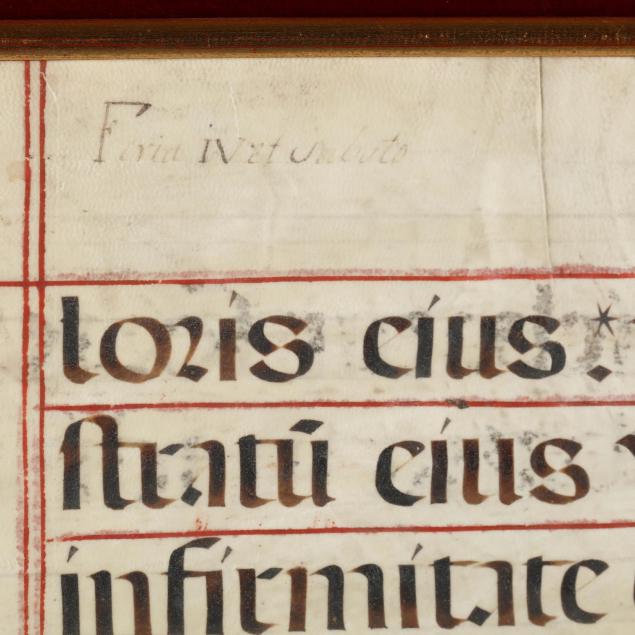 Feria IV et Sabato
loris eius. *
stratū eius
infirmitate